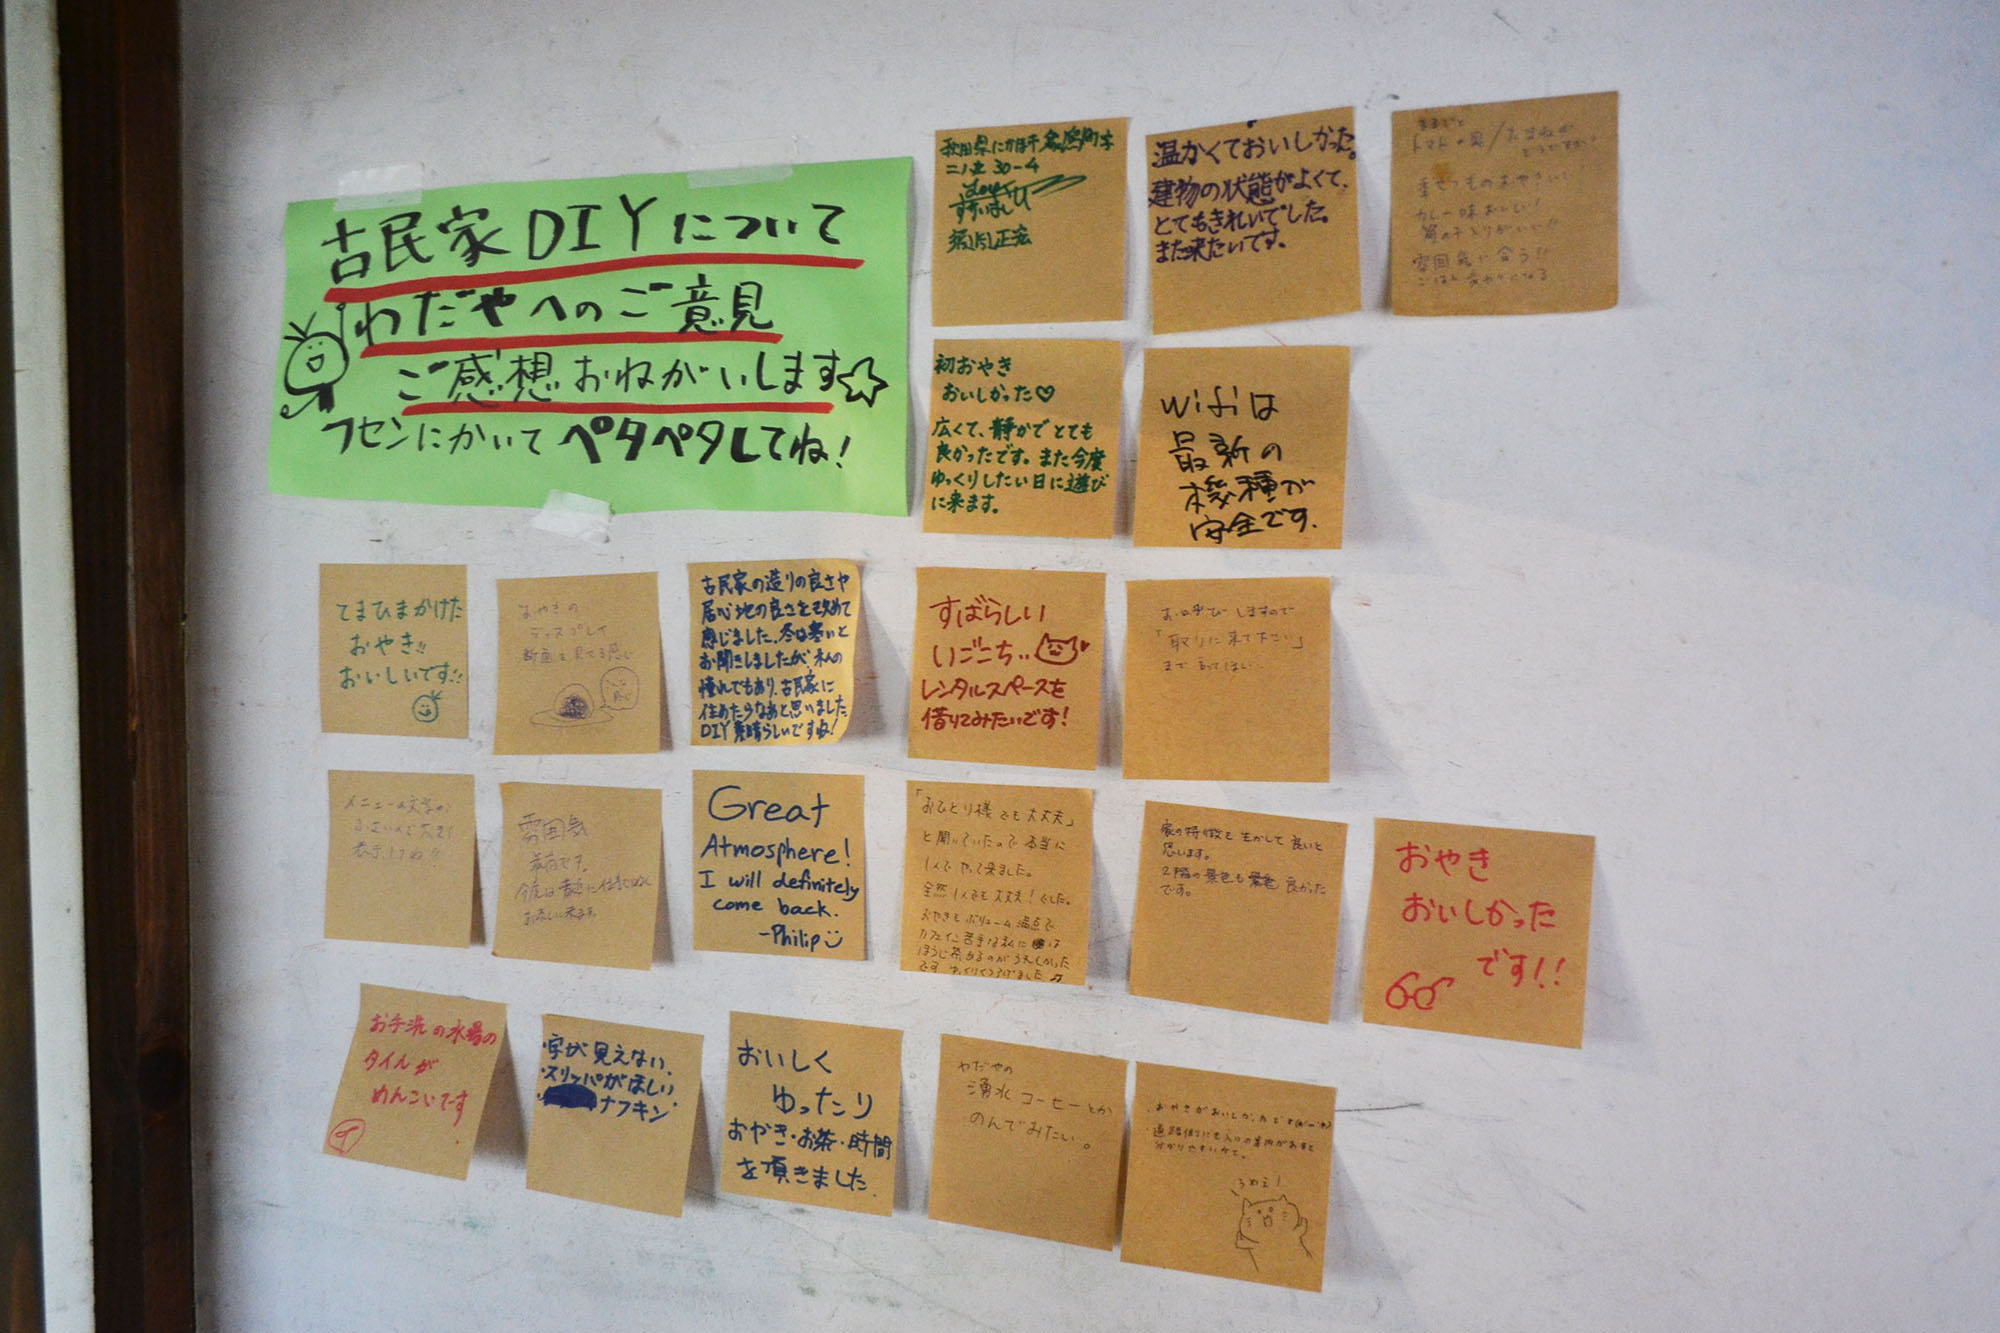 古民家DIYについて
わだやへのご意見
ご感想おねがいします☆
フセンにかいてペタペタしてね!
温かくておいしかった。
建物の状態がよくて、
とてもきれいでした。
また来たいです。
カレー味おいしい!
雰囲気に合う!!
初おやき
おいしかった♡
広くて、静かでとても
良かったです。また今度
ゆっくりしたい日に遊び
に来ます。
wifiは
最新の
機種が
安全です.
てまひまかけた
おやき!!
おいしいです!!
おやきの
ディスプレイ
断面も見てる感じ
古民家の造りの良さや
居心地の良さを改めて
感じました。冬は寒いと
お聞きしましたが、私の
憧れでもあり、古民家に
住めたらなぁと思いました。
DIY素晴らしいですね!
すばらしい
いごこち..
レンタルスペースを
借りてみたいです!
お呼びしますので
「取りに来て下さい」
まで言ってほしい..
メニューの文字が
雰囲気
最高です。
Great
Atmosphere!
I will definitely
come back.
-Philip
「おひとり様でも大丈夫」
と聞いていたので本当に
1人でやって来ました。
全然1人でも大丈夫!でした。
おやきもボリューム満点で
カフェイン苦手な私には
ほうじ茶あるのがうれしかった
です ゆっくりくつろげました♫
家の特徴も生かして良いと
思います。
2階の景色も景色良かった
です。
おやき
おいしかった
です!!
お手洗の水場の
タイルが
めんこいです
・字が見えない、
・スリッパがほしい
ナフキン
おいしく
ゆったり
おやき・お茶・時間
を頂きました.
わだやの
湧水コーヒーとか
のんでみたい。
・おやきがおいしかったです
・道路側にも入口の案内があると
分かりやすいかも。
うめえ!